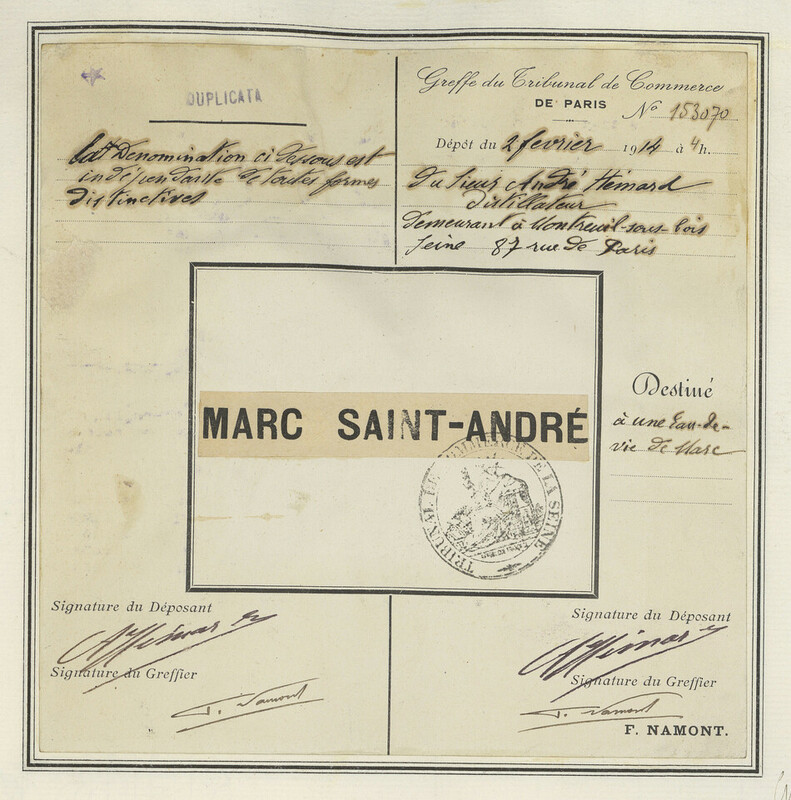 DUPLICATA
la dte Denomination ci dessous est
indépendante de toutes formes
distinctives
Greffe du Tribunal de Commerce
DE PARIS
No 153070
Dépôt du 2 fevrier 1914 à 4 h.
du sieur André Hémard
distillateur
demeurant à Montreuil-sous-bois
Seine 87 rue de Paris
MARC SAINT-ANDRÉ
TRIBUNAL DE COMMERCE DE LA SEINE
Destiné
à une Eau-de-
vie de Marc
Signature du Déposant
AHémard
Signature du Greffier
F. Namont
Signature du Déposant
AHémard
Signature du Greffier
F. Namont
F. NAMONT.